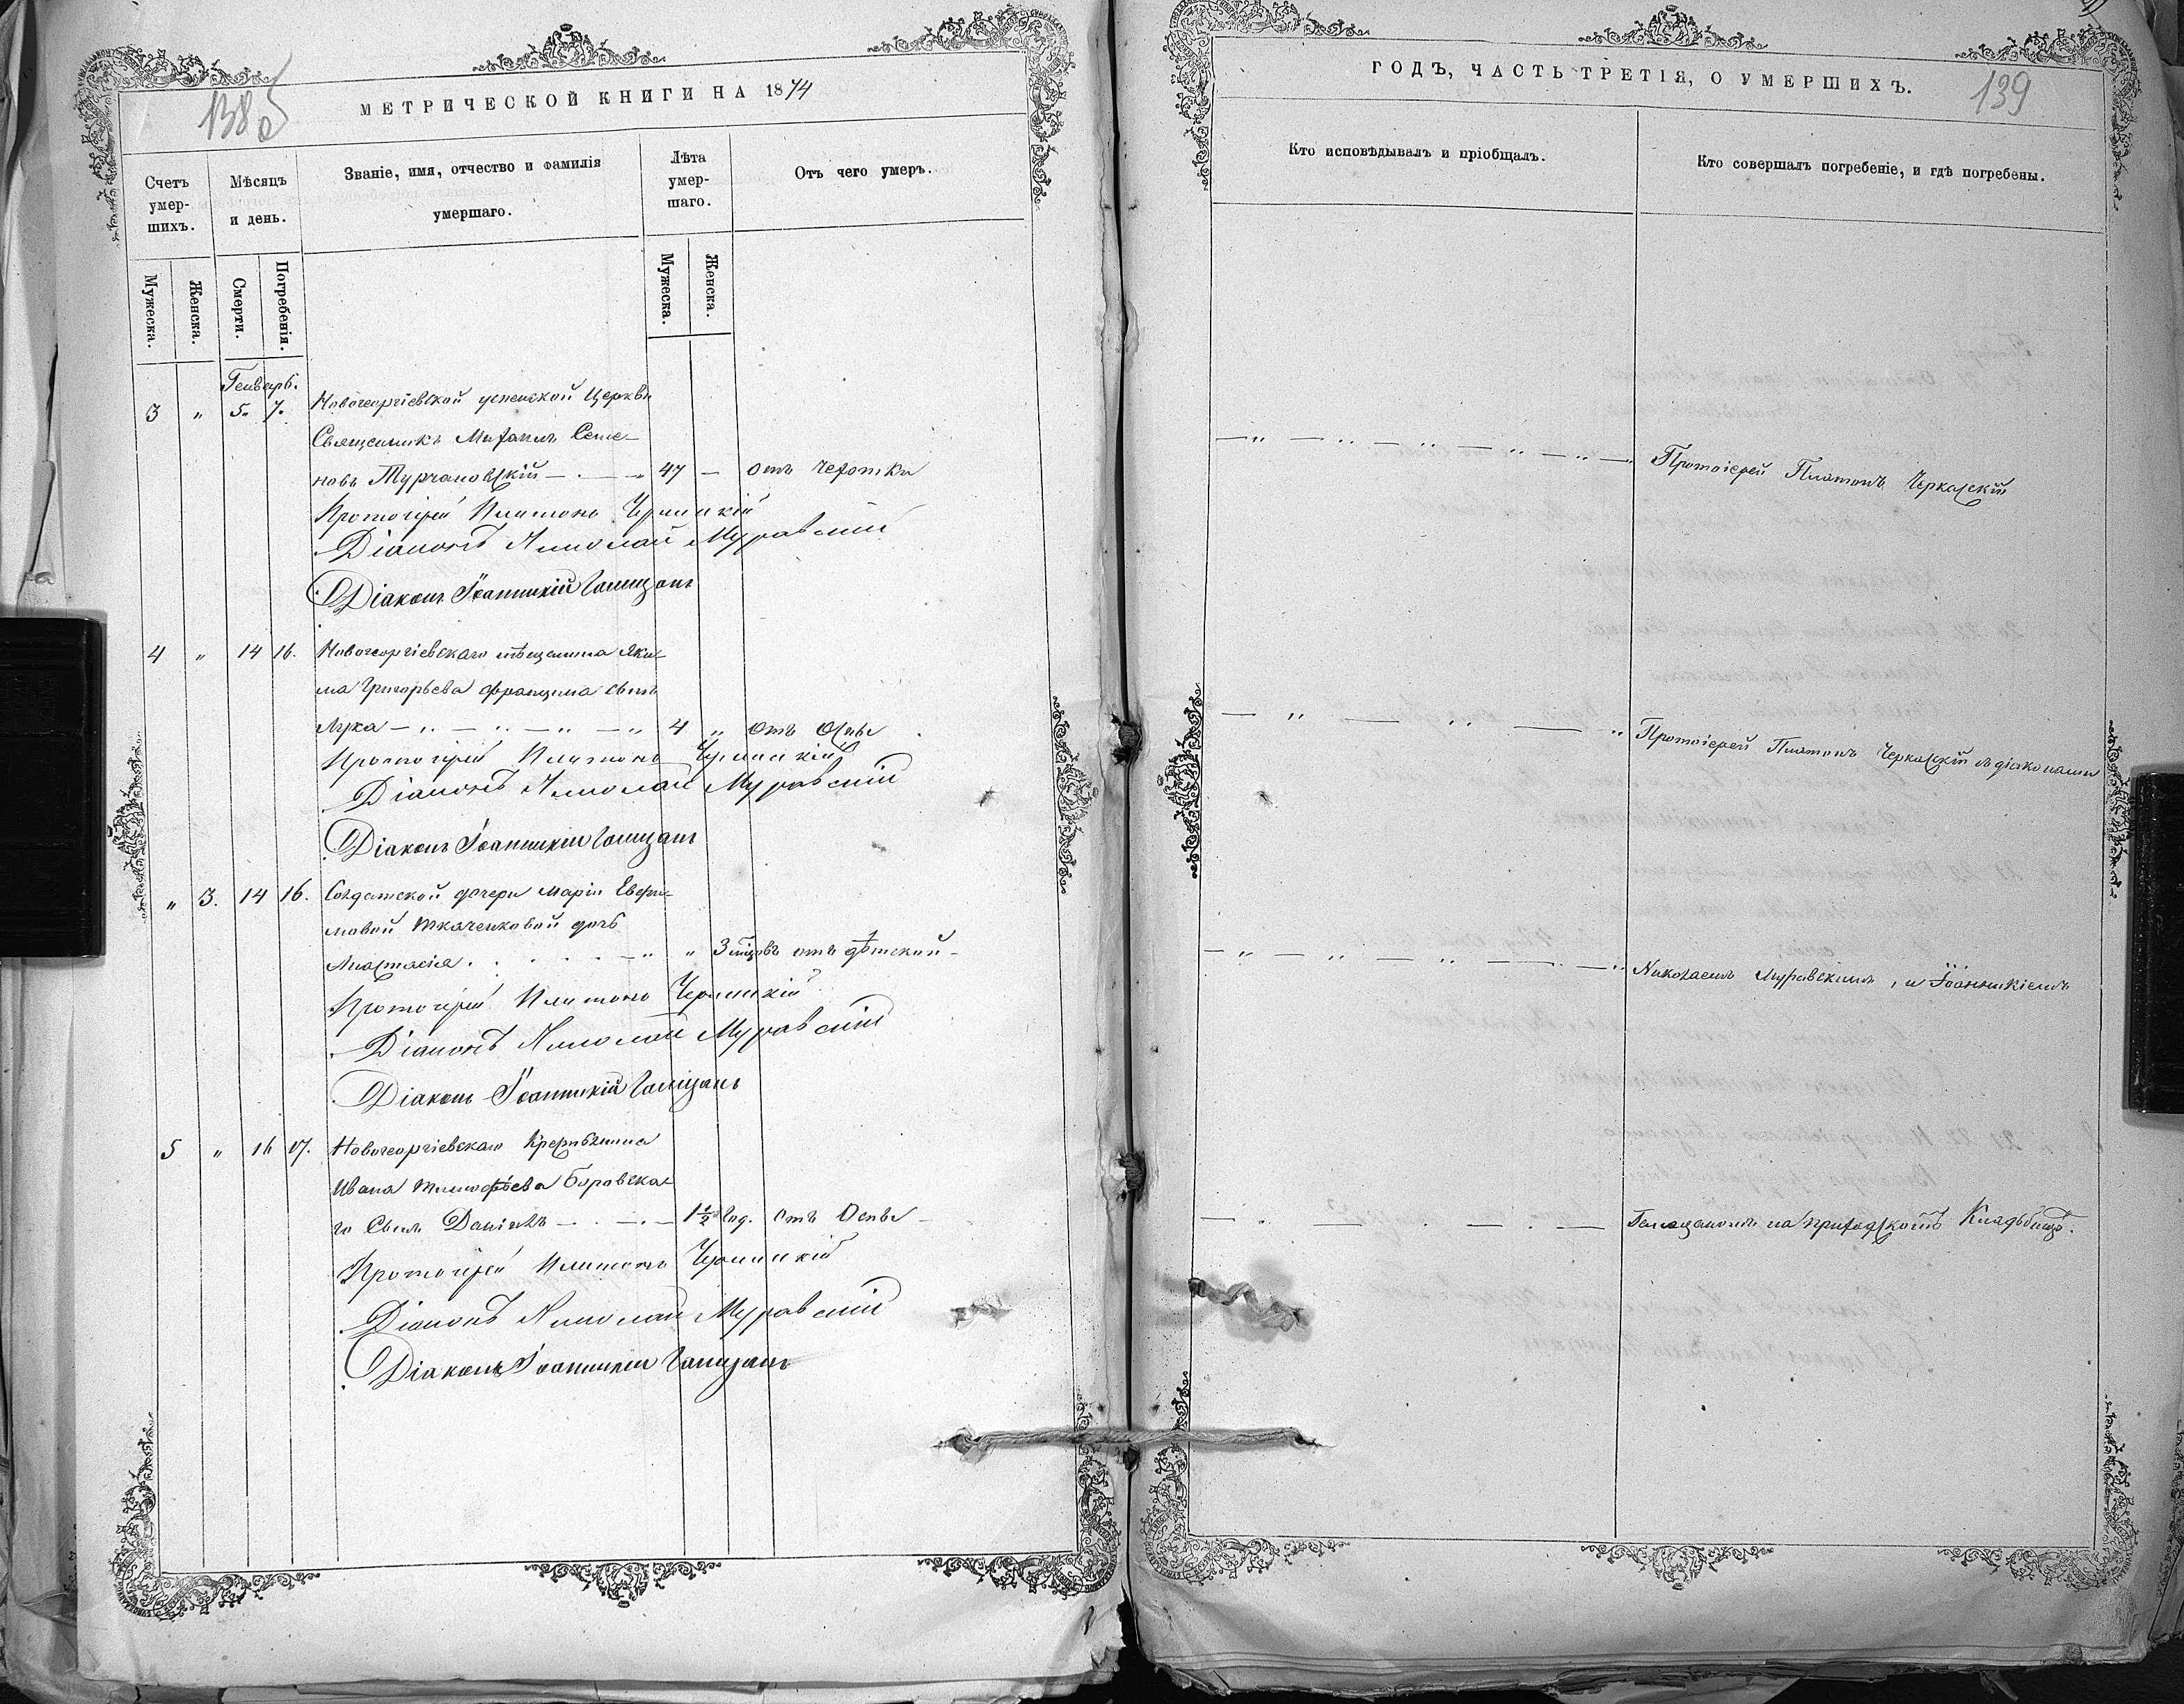 138об
МЕТРИЧЕСКОЙ КНИГИ НА 1874
Счетъ умер-шихъ.
Мѣсяцъ и день.
Званіе, имя, отчество и фамилія умершаго.
Лѣта умер-шаго.
Отъ чего умеръ.
Мужеска.
Женска.
Смерти.
Погребенія.
Мужеска.
Женска.
Генварь.
3 " 5. 7. Новогеоргіевской успенской Церкви
Священникъ Михаилъ Семе-
новъ Турчановскій 47 — отъ чахотки
Протоіерей Платонъ Черкаскій
Діаконъ Николай Муравскій
Діаконъ Іоанникій Галицанъ
4 " 14 16. Новогеоргіевскаго мѣщанина Яки-
ма Григорьева сынъ
4 " отъ Оспы
Протоіерей Платонъ Черкаскій
Діаконъ Николай Муравскій
Діаконъ Іоанникій Галицанъ
" 3. 14 16. Солдатской дочери Маріи Евфи-
мовой Ткаченковой дочь
Анастасія " 3 мцовъ отъ дѣтской
Протоіерей Платонъ Черкаскій
Діаконъ Николай Муравскій
Діаконъ Іоанникій Галицанъ
5 " 16 17. Новогеоргіевскаго
Ивана Тимофѣева Боровска-
го Сынъ Даніилъ 1½ год. отъ Оспы
Протоіерей Платонъ Черкаскій
Діаконъ Николай Муравскій
Діаконъ Іоанникій Галицанъ
ГОДЪ, ЧАСТЬ ТРЕТІЯ, О УМЕРШИХЪ.
139
Кто исповѣдывалъ и пріобщалъ.
Кто совершалъ погребеніе, и гдѣ погребены.
Протоіерей Платонъ Черкаскій
Протоіерей Платонъ Черкаскій съ діаконами
Николаемъ Муравскимъ, и Іоанникіемъ
Галицаномъ на приходскомъ Кладбищѣ.